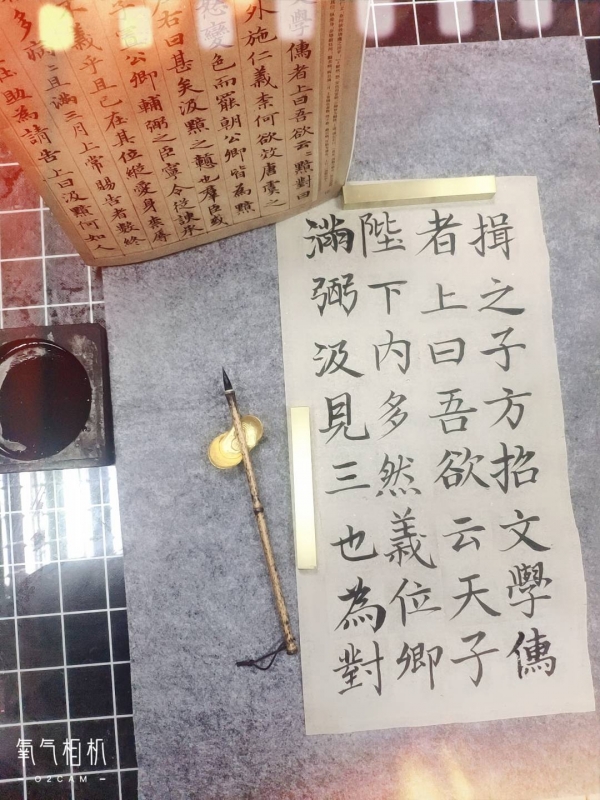 文學儒者上曰吾欲云云黯對曰
外施仁義柰何欲效唐虞之
怒變色而罷朝公卿皆為黯
右曰甚矣汲黯之戇也羣臣或
公卿輔弼之臣寧令從諛承
義乎且已在其位縱愛身柰辱
多病病且滿三月上常賜告者數終
助為請告上曰汲黯何如人
揖之子方招文學儒
者上曰吾欲云天子
陛下內多然義位卿
滿弼汲見三也為對
氧气相机
- O2CAM -